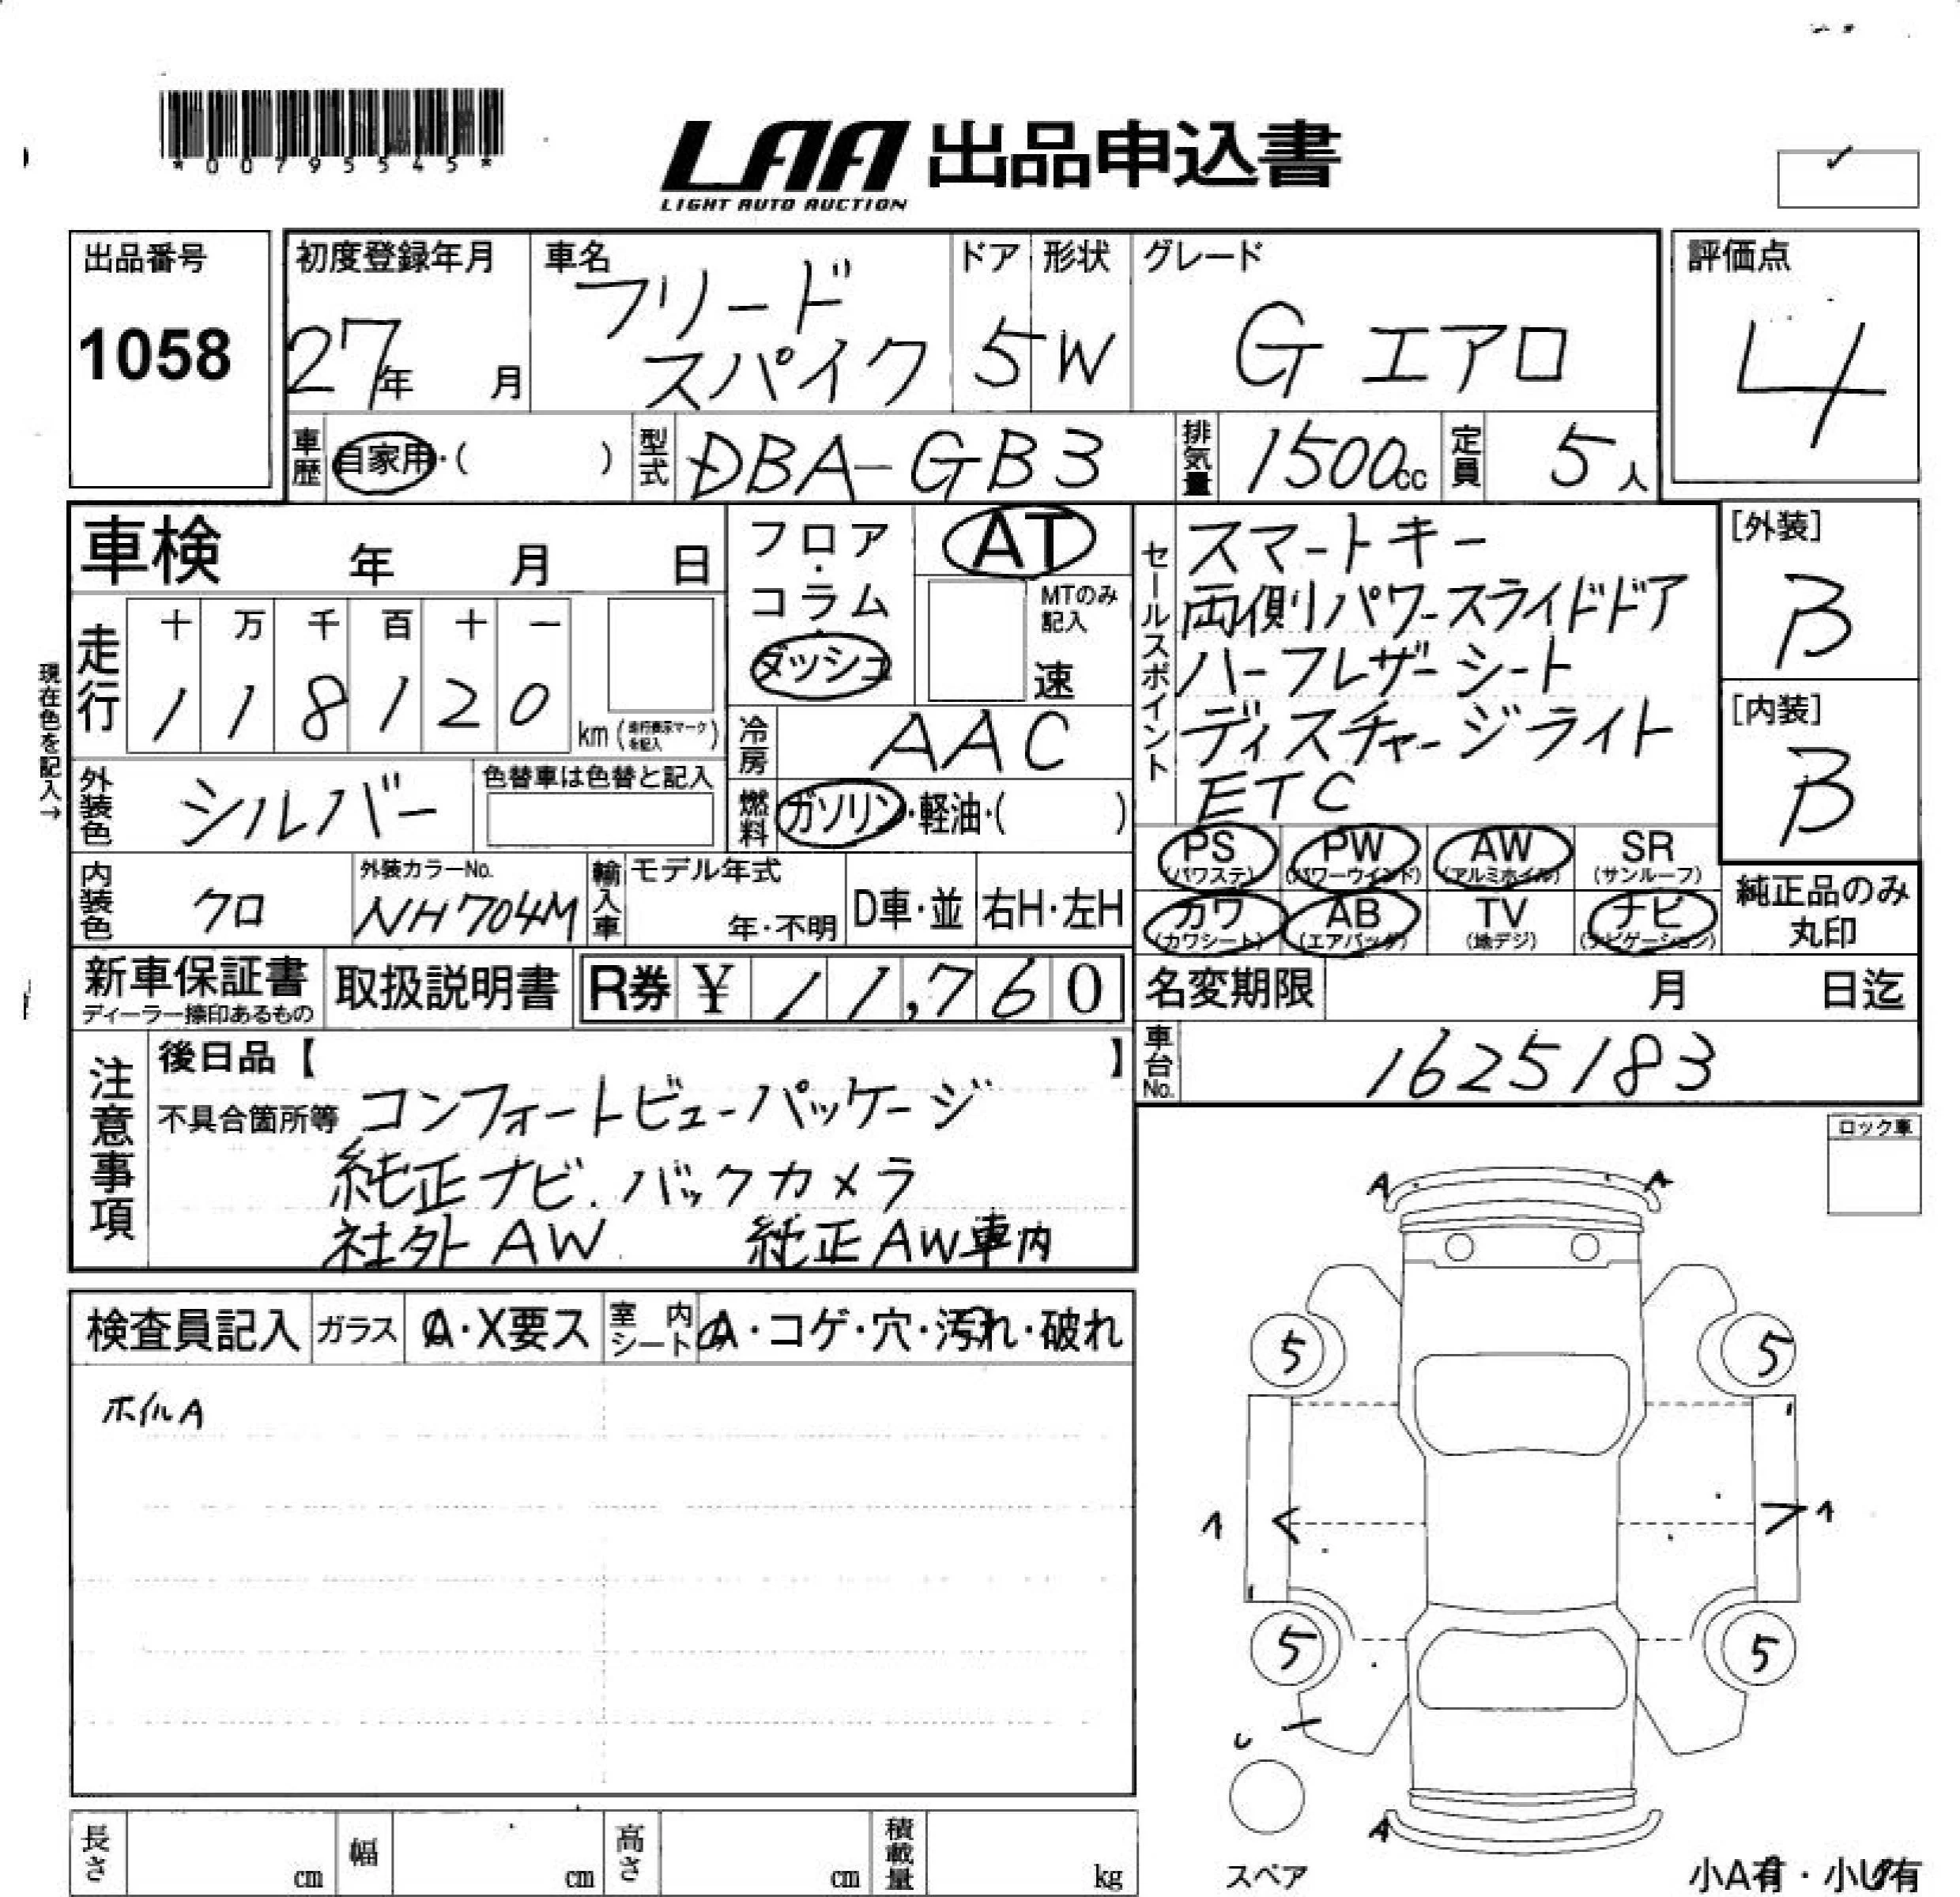 *00795545*
LAA 出品申込書
LIGHT AUTO AUCTION
出品番号
1058
初度登録年月
27年 月
車名
フリード
スパイク
ドア
5
形状
W
グレード
G エアロ
評価点
4
車歴 自家用・( )
型式 DBA-GB3
排気量 1500cc
定員 5人
車検 年 月 日
現在色を記入→
走行
十 万 千 百 十 一
1 1 8 1 2 0
km (走行表示マークを記入)
フロア・
コラム・
ダッシュ
AT
MTのみ
記入
速
冷房 AAC
燃料 ガソリン・軽油・( )
外装色 シルバー
色替車は色替と記入
内装色 クロ
外装カラーNo.
NH704M
輸入車
モデル年式
年・不明
D車・並
右H・左H
新車保証書
ディーラー捺印あるもの
取扱説明書
R券 ¥ 11,760
セールスポイント
スマートキー
両側パワースライドドア
ハーフレザーシート
ディスチャージライト
ETC
[外装]
B
[内装]
B
PS
(パワステ)
PW
(パワーウインド)
AW
(アルミホイル)
SR
(サンルーフ)
カワ
(カワシート)
AB
(エアバッグ)
TV
(地デジ)
ナビ
(ナビゲーション)
純正品のみ
丸印
名変期限 月 日迄
車台No. 1625183
注意事項
後日品【 】
不具合箇所等 コンフォートビューパッケージ
純正ナビ.バックカメラ
社外AW 純正AW車内
ロック車
検査員記入
ガラス
A・X要ス
室内
シート
A・コゲ・穴・汚れ・破れ
ホイルA
A A
5 5
1 1
5 5
A
スペア
小A有・小U有
長さ cm
幅 cm
高さ cm
積載量 kg